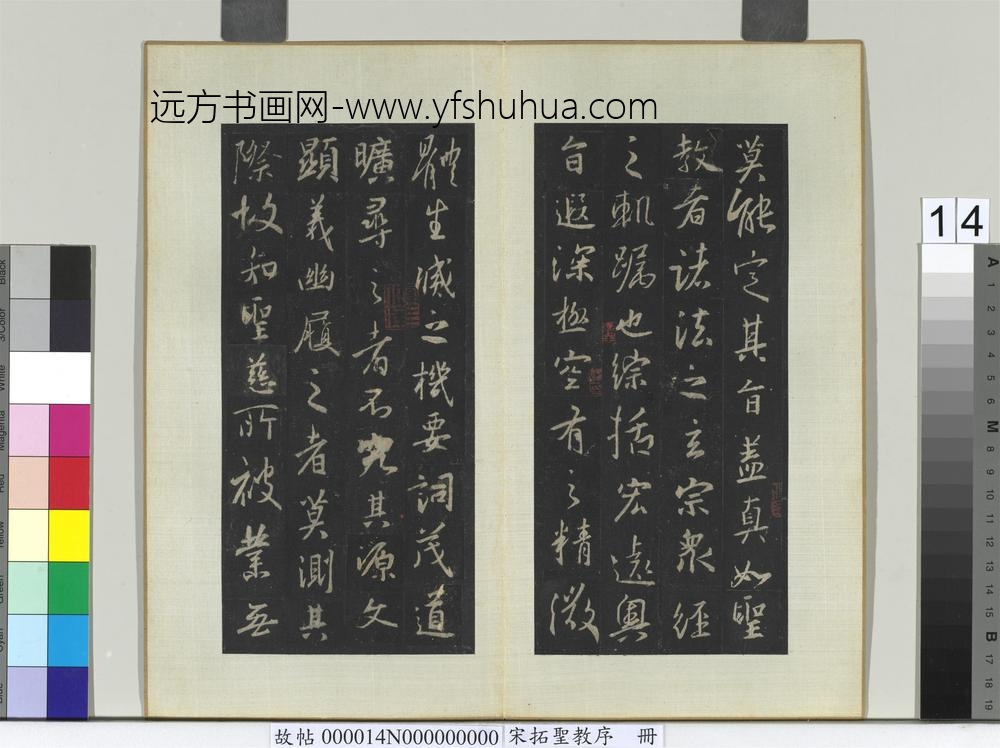 远方书画网-www.yfshuhua.com
莫能定其旨盖真如聖
教者諸法之玄宗衆經
之軌躅也綜括宏遠奧
旨遐深極空有之精微
體生滅之機要詞茂道
曠尋之者不究其源文
顯義幽履之者莫測其
際故知聖慈所被業無
14
Black
3/Color
White
Magenta
Red
Yellow
Green
Cyan
Blue
A
1
2
3
4
5
6
M
8
9
10
11
12
13
14
15
B
17
18
19
故帖 000014N000000000 宋拓聖教序 冊